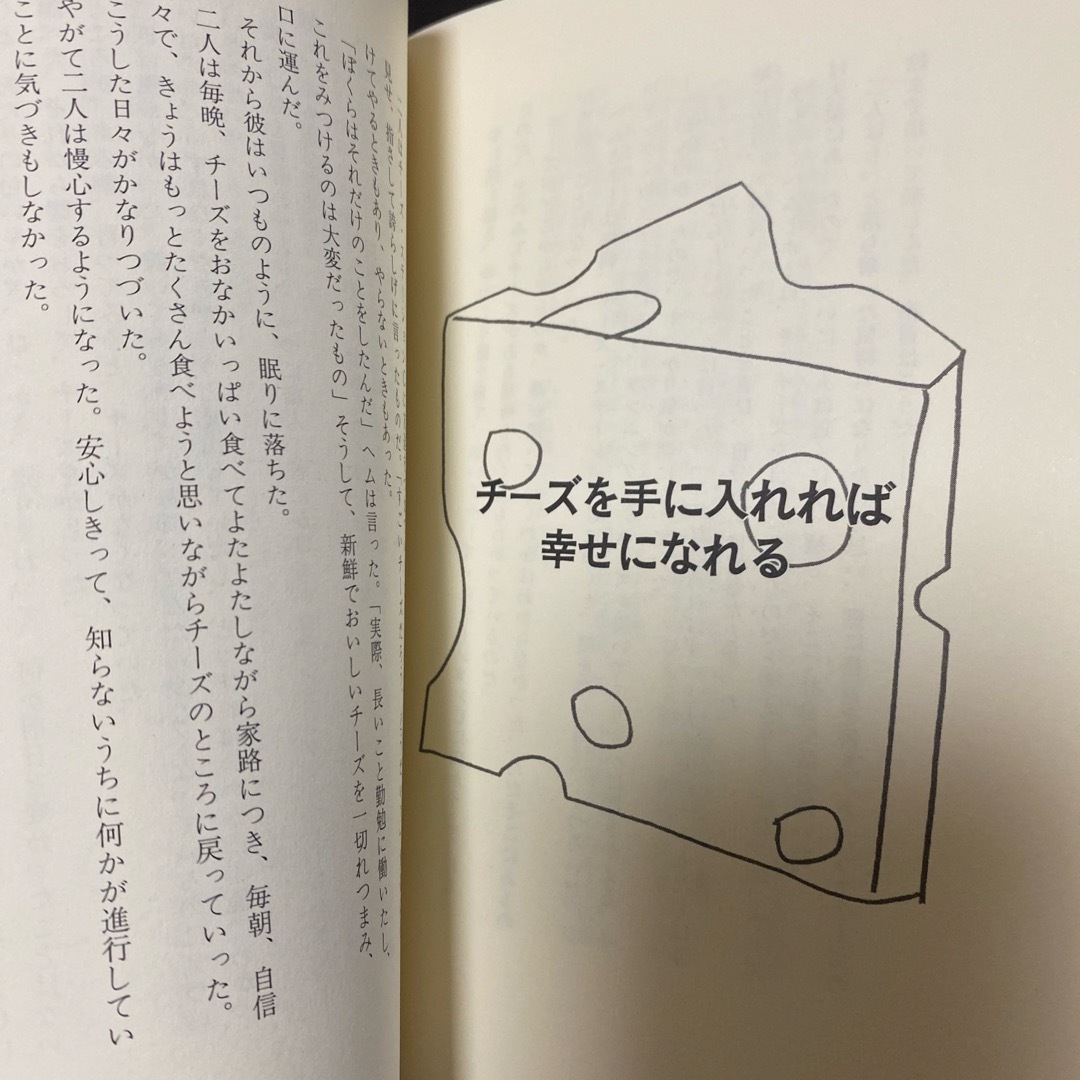 見せ、指さして誇らしげに言ったものだ。「すごいチーズだろ
けてやるときもあり、やらないときもあった。
「ぼくらはそれだけのことをしたんだ」ヘムは言った。「実際、長いこと勤勉に働いたし、
これをみつけるのは大変だったもの」そうして、新鮮でおいしいチーズを一切れつまみ、
口に運んだ。
それから彼はいつものように、眠りに落ちた。
二人は毎晩、チーズをおなかいっぱい食べてよたよたしながら家路につき、毎朝、自信
々で、きょうはもっとたくさん食べようと思いながらチーズのところに戻っていった。
こうした日々がかなりつづいた。
やがて二人は慢心するようになった。安心しきって、知らないうちに何かが進行してい
ことに気づきもしなかった。
チーズを手に入れれば
幸せになれる